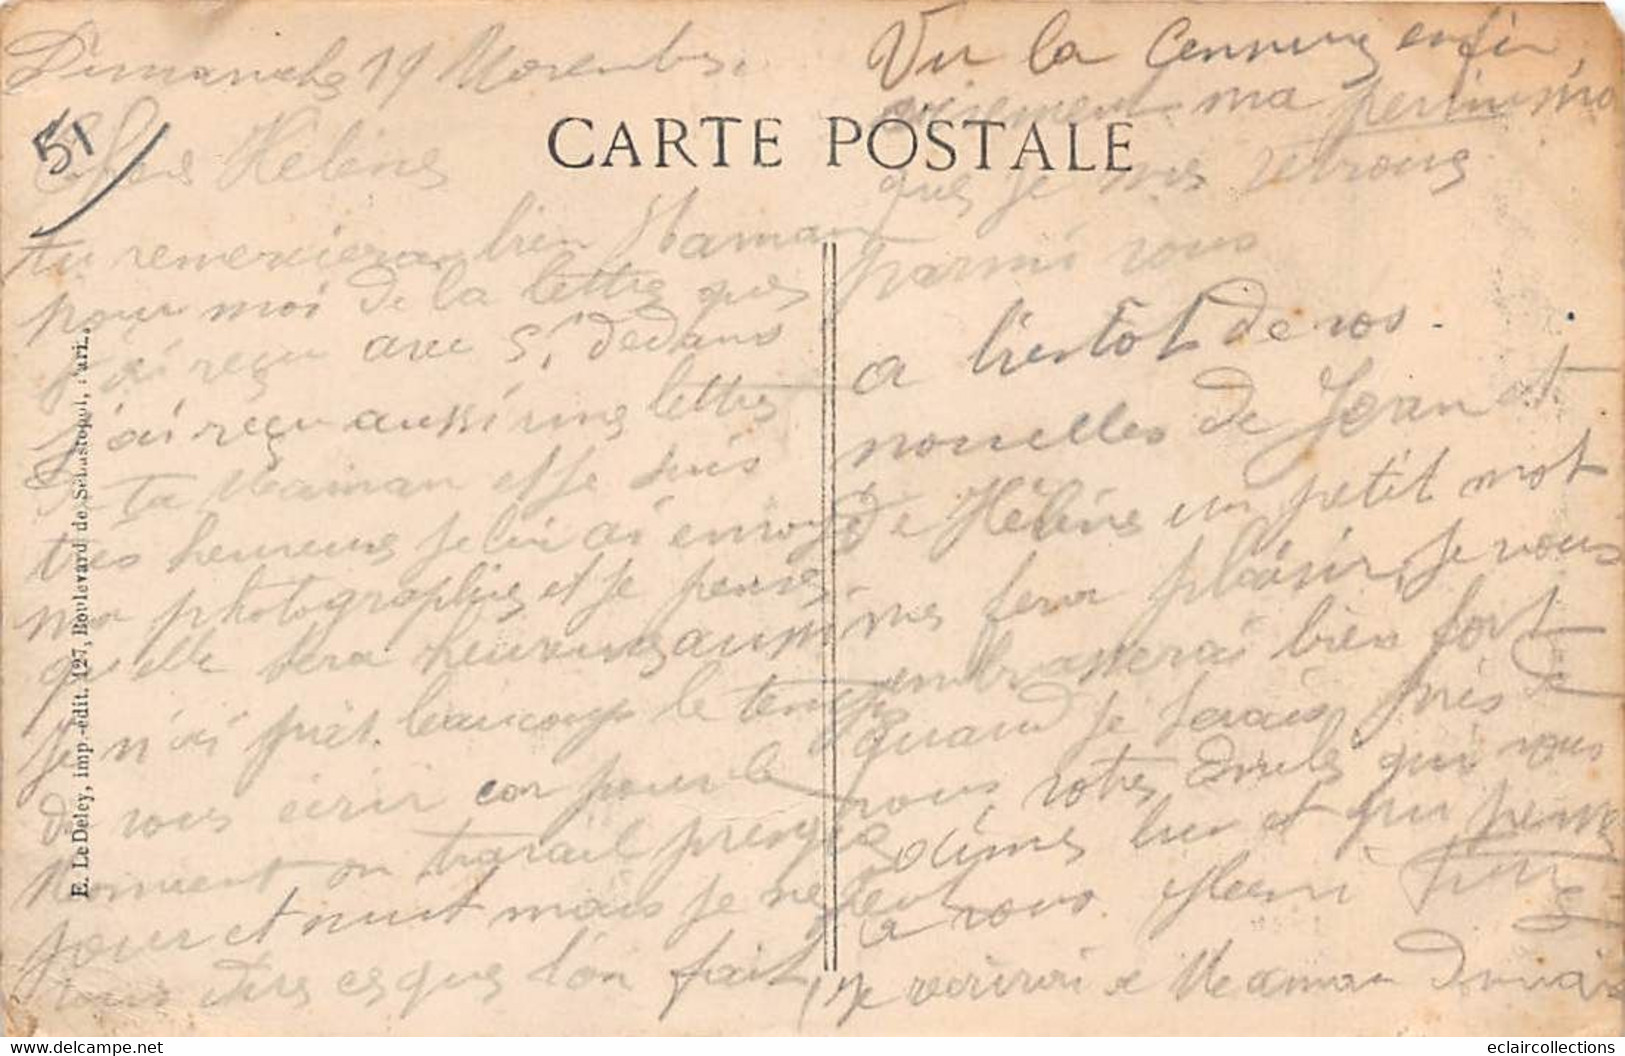 Dimanche 19 Novembre
51
Chere Hélène
CARTE POSTALE
tu remercieras bien Maman
pour moi de la lettre que
j'ai reçu avec 5f dedans
j'ai reçu aussi une lettre
de ta Maman et je suis
très heureuse je lui ai envoyé
ma photographie et je pense
qu'elle sera heureuse aussi
je n'ai pas beaucoup le temps
de vous écrir car pour le
Moment on travail presque
jour et nuit mais je ne peut
vous dire ce que l'on fait
Vu la Censure enfin
ma permi
que je me retrouve
parmi vous
a bientot de vos
nouvelles de Jean et
de Hélène un petit mot
me fera plaisir, je vous
embrasserai bien fort
quand je serais près de
vous votre qui vous
aime bien et qui pense
a vous Henri
je écrirai a Maman
E. Le Deley, imp.-édit. 127, Boulevard de Sébastopol, Paris.
www.delcampe.net
eclaircollections